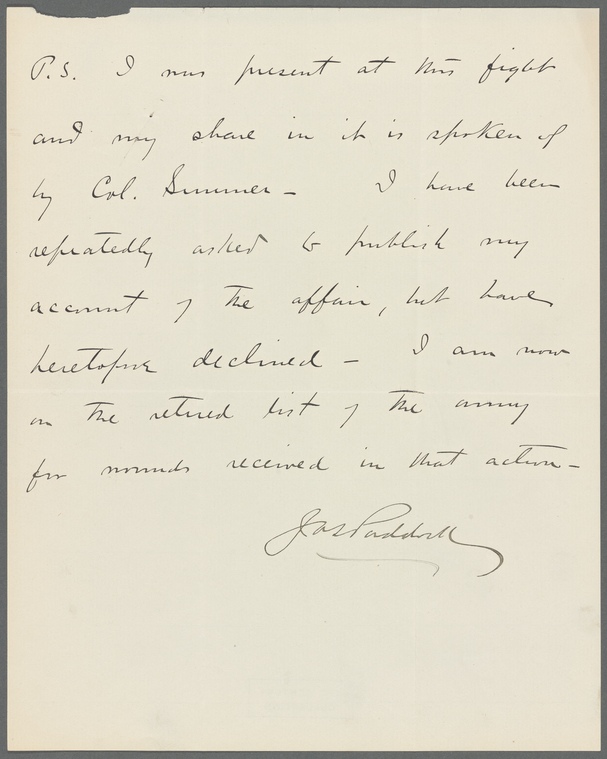 P.S. I was present at this fight
and my share in it is spoken of
by Col. Sumner – I have been
repeatedly asked to publish my
account of the affair, but have
heretofore declined – I am now
on the retired list of the army
for wounds received in that action –
Jas Paddock